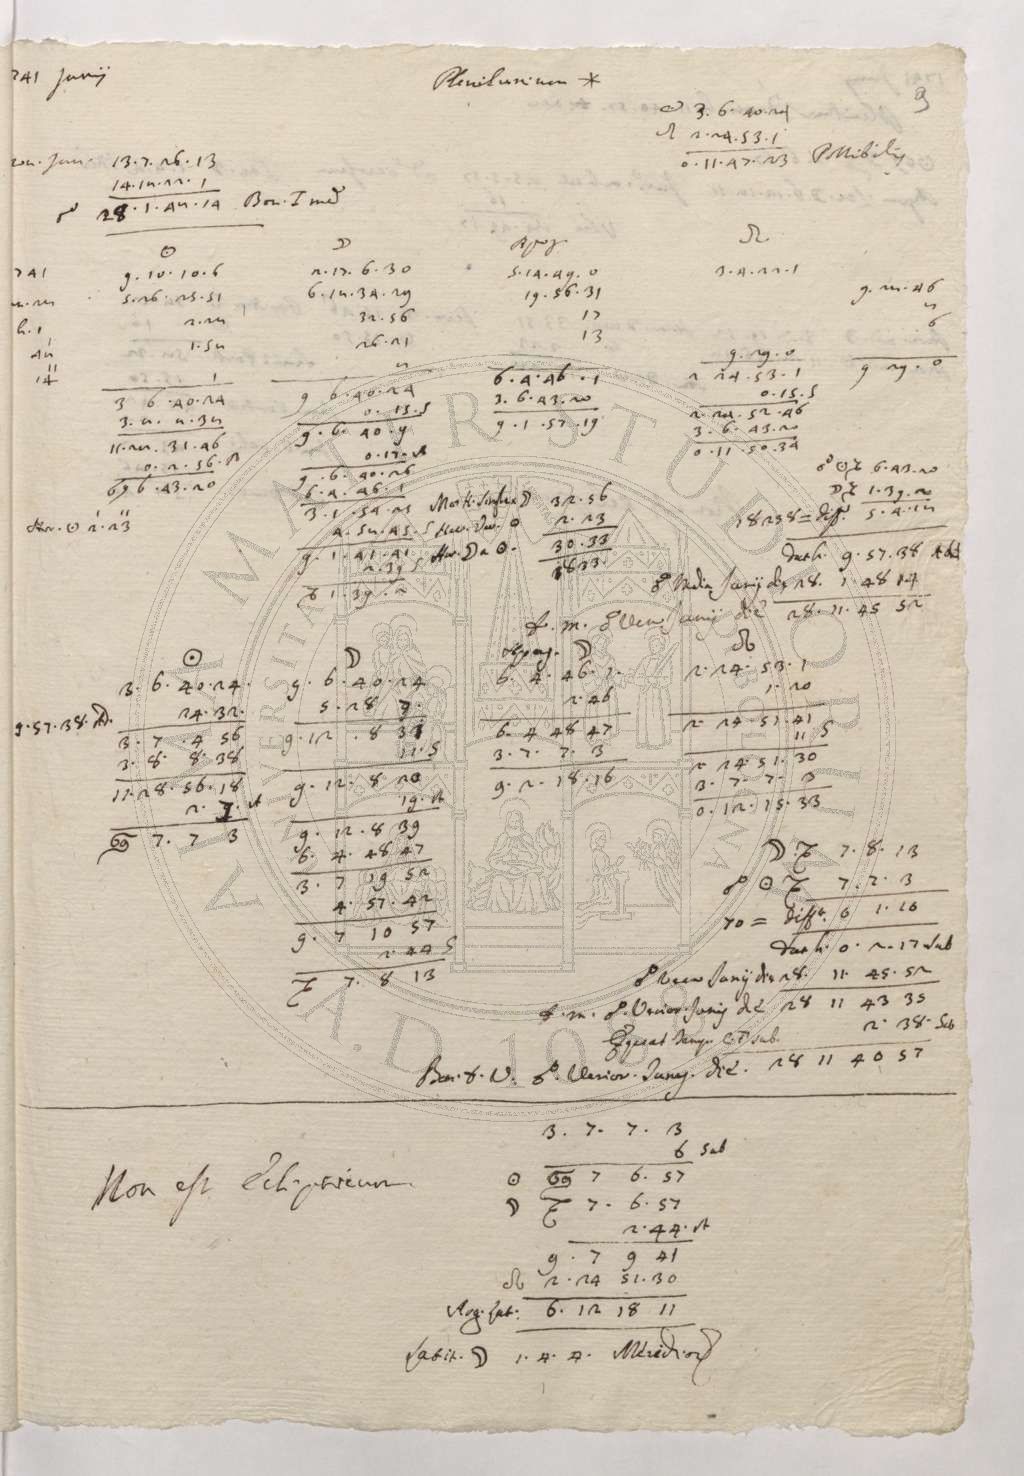 741 Junij Plenilunium * 9
☍ 3. 6. 40. 24
☊ 2. 24. 53. 1
0. 11. 47. 23
13. 7. 26. 13
14. 15. 22. 1
☍ 28. 1. 45. 14 Bon. T. med.
☉ ☽ Apog. ☊
741 9. 10. 10. 6 2. 17. 6. 30 5. 14. 49. 0 3. 4. 22. 1
5. 26. 25. 51 6. 15. 34. 29 19. 56. 31 9. 25. 46
h. 1 2. 25 32. 56 17 5
45 1. 54 26. 21 13 6
14 1 5 9. 29. 0 9 29. 0
3 6. 40. 24 9 6. 40. 24 6. 4. 46. 1 2 24. 53. 1
3. 5. 5. 35 0. 15. S 3. 6. 43. 20 0. 15. S
11. 25. 31. 46 9. 6. 40. 9 9. 1. 57. 19 2. 24. 52. 46
0. 2. 56. A 0. 17. A 3. 6. 43. 20
♋ 6. 43. 20 9. 6. 40. 26 0. 11. 50. 34
6. 4. 46. 1 ☍ ☉ ♑ 6. 43. 20
3. 1. 54. 25 32. 56 ☽ ♑ 1. 39. 2
Hor. ☉ 2. 23 4. 54. 45. S Hor. ☉ 2. 23 18258 = diff. 5. 4. 15
9. 1. 41. 41 Hor. ☽ a ☉. 30. 33
2. 39 S 1833 9. 57. 38 Add
♑ 1. 39. 2 ☍ Media Junij die 28. 1. 48 14
t. m. ☍ Vera Junij die 28. 11. 45 52
☉ ☽ Apog. ☽ ☊
3. 6. 40. 24. 9. 6. 40. 24 6. 4. 46. 1. 2. 24. 53. 1
9. 57. 38. A. 24. 32. 5. 28 7. 2. 46 1. 20
3. 7. 4 56 9. 12. 8 31 6. 4 48 47 2. 24. 51. 41
3. 8. 8. 38 11. S 3. 7. 7. 3 11 S
11. 28. 56. 18 9. 12. 8 20 9. 2. 18. 16 2 24. 51. 30
2. 7. A 19. A 3. 7. 7. 3
♋ 7. 7 3 9. 12. 8 39 0. 12. 15. 33
6. 4. 48 47 ☽. ♑ 7. 8. 13
3. 7 19 52 ☍ ☉ ♑ 7. 7. 3
4. 57. 42 70 = diff. 0 1. 10
9. 7 10 57 0. 2. 17 sub
2. 44 S ☍ Vera Junij die 28. 11. 45. 52
♑ 7. 8 13 t. m. ☍. Verior. Junij die 28 11 43 35
2. 38. Sub
Bon. t. V. ☍. Verior. Junij. die. 28 11 40 57
3. 7. 7. 3
6 sub
Non est Eclipticum ☉ ♋ 7 6. 57
☽ ♑ 7. 6. 57
2. 44. A
9. 7 9 41
☊ 2. 24 51. 30
Arg. Lat. 6. 12 18 11
Latit. ☽ 1. 4. 4. Merid.
ALMA MATER STUDIORUM
UNIVERSITAS
A.D. 1088